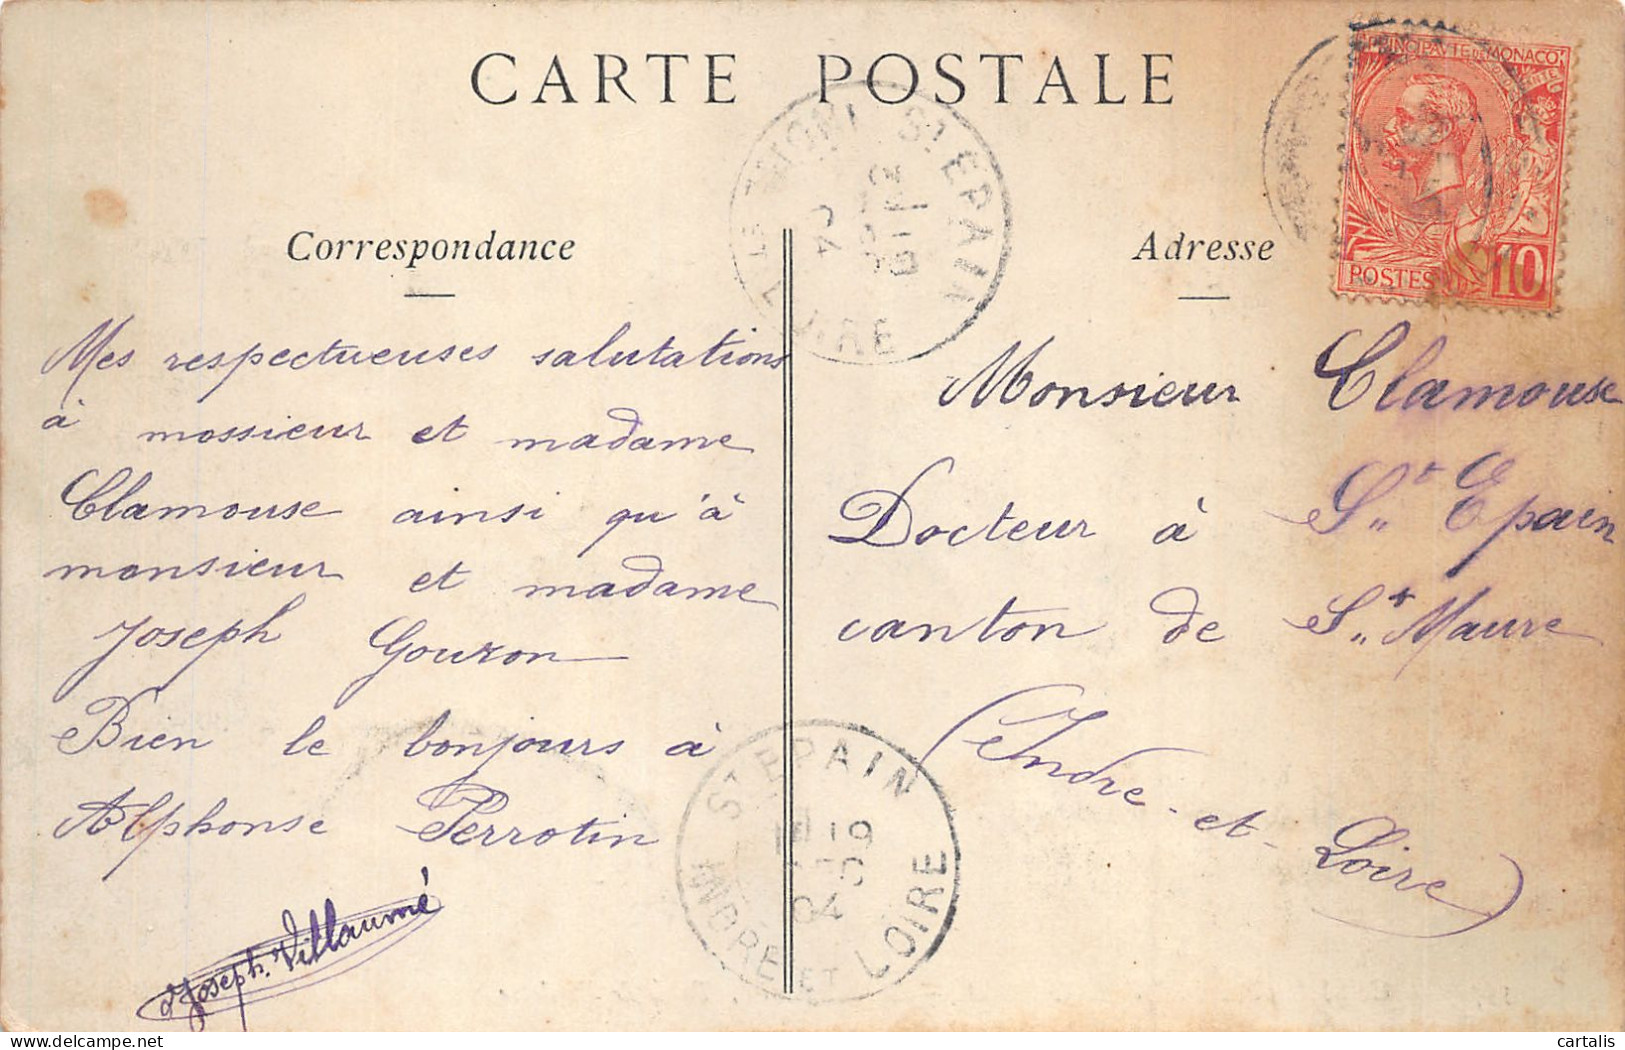 CARTE POSTALE
Correspondance
Mes respectueuses salutations
à mossieur et madame
Clamouse ainsi qu'à
monsieur et madame
Joseph Gouron
Bien le bonjours à
Alphonse Perrotin
Joseph Villaumé
Adresse
Monsieur Clamouse
Docteur à St Epain
canton de Ste Maure
(Indre-et-Loire)
PRINCIPAVTE DE MONACO
POSTES
10
ST EPAIN
LOIRE
ST EPAIN
INDRE ET LOIRE
04
cartalis